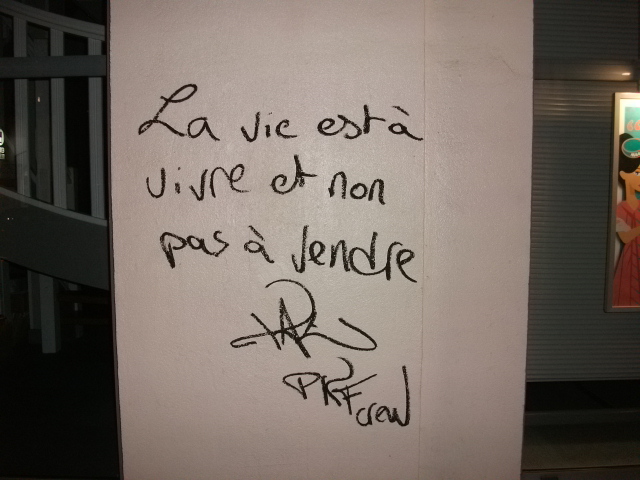 La vie est à
vivre et non
pas à vendre
PKF crew